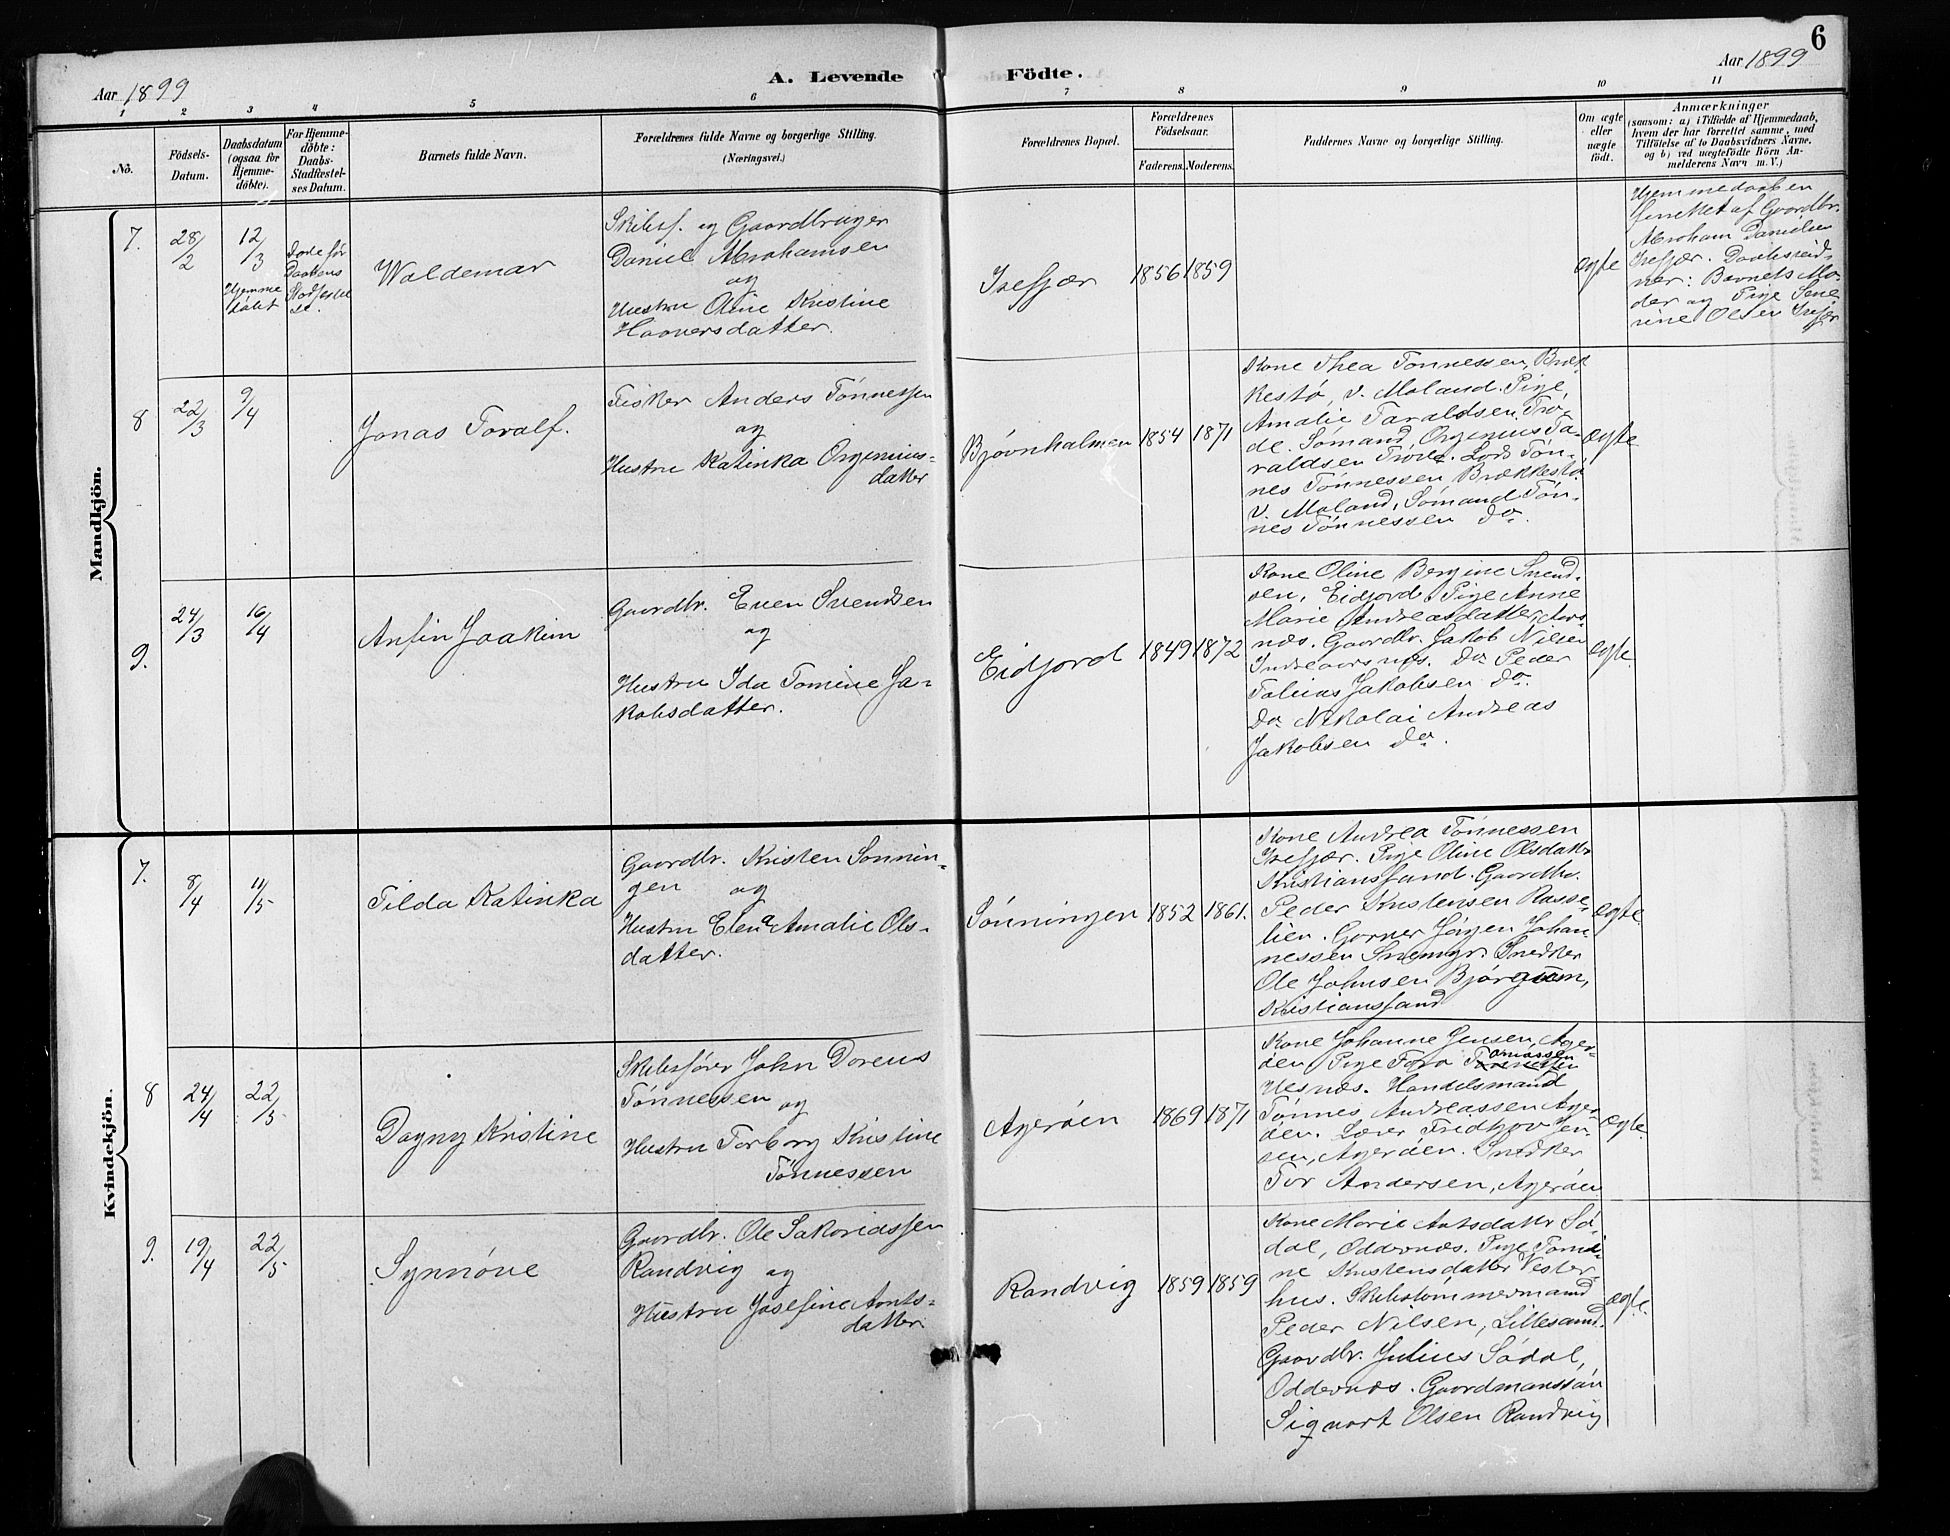 6
Aar 1899
A. Levende
Födte.
Aar 1899
1 2 3 4 5 6 7 8 9 10 11
No.
Födsels-
Datum.
Daabsdatum
(ogsaa for
Hjemme-
döbte).
For Hjemme-
döbte:
Daabs-
Stadfæstel-
ses Datum.
Barnets fulde Navn.
Forældrenes fulde Navne og borgerlige Stilling.
(Næringsvei.)
Forældrenes Bopæl.
Forældrenes
Födselsaar.
Faderens.
Moderens.
Faddernes Navne og borgerlige Stilling.
Om ægte
eller
uægte
födt.
Anmærkninger
(saasom: a) i Tilfælde af Hjemmedaab,
hvem der har forrettet samme, med
Tilföielse af to Daabsvidners Navne,
og b) ved uægtefödte Börn An-
melderens Navn m. V.)
Mandkjön.
7.
28/2
12/3
Hjemme
døbt
Døde før
Daabens
Stadfæstel
se.
Waldemar
Skibsf. og Gaardbruger
Daniel Abrahamsen
og
Hustru Oline Kristine
Haaversdatter.
Isefjær
1856
1859
ægte
Hjemmedaaben
forrettet af Gaardbr.
Abraham Danielsen
Isefjær. Daabsvid-
ner: Barnets Mo-
der og Pige
Olsen Isefjær
8
22/3
9/4
Jonas Toralf.
Fisker Anders Tønnessen
og
Hustru Katinka Orgenius-
datter
Bjøvnholmen
1854
1871
Kone Thea Tønnessen, Bræk-
kestø, V. Moland. Pige
Amalie Taraldsen Trø-
de. Sømand Orgenius Ta-
raldsen Trøde. Lods Tøn-
nes Tønnessen Brækkestø
V. Moland, Sømand Tøn-
nes Tønnessen do.
ægte
9.
24/3
16/4
Anfin Joakim
Gaardbr. Even Svendsen
og
Hustru Ida Tomine Ja-
kobsdatter.
Eidjord
1849
1872
Kone Oline Bergine Svend-
sen, Eidjord. Pige Anne
Marie Andreasdatter, Aars-
næs. Gaardbr. Jakob Nilsen
Indreaarsnæs. Do Peder
Tobias Jakobsen do.
Do Nikolai Andreas
Jakobsen do.
ægte.
Kvindekjön.
7.
8/4
11/5
Tilda Katinka
Gaardbr. Kristen Sønnin-
gen og
Hustru Elena Amalie Ols-
datter.
Sønningen
1852
1861.
Kone Andrea Tønnessen
Isefjær. Pige Oline Olsdatter
Kristianssand. Gaardbr.
Peder Kristensen Rosse-
lien. Garver Jørgen Johan-
nessen Snemyr. Snedker
Ole Johnsen Bjørguum,
Kristianssand
ægte
8
24/4
22/5
Dagny Kristine
Skibsfører John Dorens
Tønnessen og
Hustru Torborg Kristine
Tønnessen
Agerøen
1869
1871
Kone Johanne Jensen, Ager-
øen Pige Tora Tomassen
Uesnæs. Handelsmand
Tønnes Andreassen Ager-
øen. Lærer Fridtjov Jen-
sen, Agerøen. Snedker
Tor Andersen, Agerøen
ægte.
9.
19/4
22/5
Synnøve
Gaardbr. Ole Sakariassen
Randvig og
Hustru Josefine Aants-
datter.
Randvig
1859
1859
Kone Marie Antsdatter Sø-
dal, Oddernæs. Pige Tomi-
ne Kristensdatter Vester-
hus. Skibstømmermand
Peder Nilsen, Lillesand.
Gaardbr. Julius Sødal,
Oddernæs. Gaardmanssøn
Sigvart Olsen Randvig
ægte.